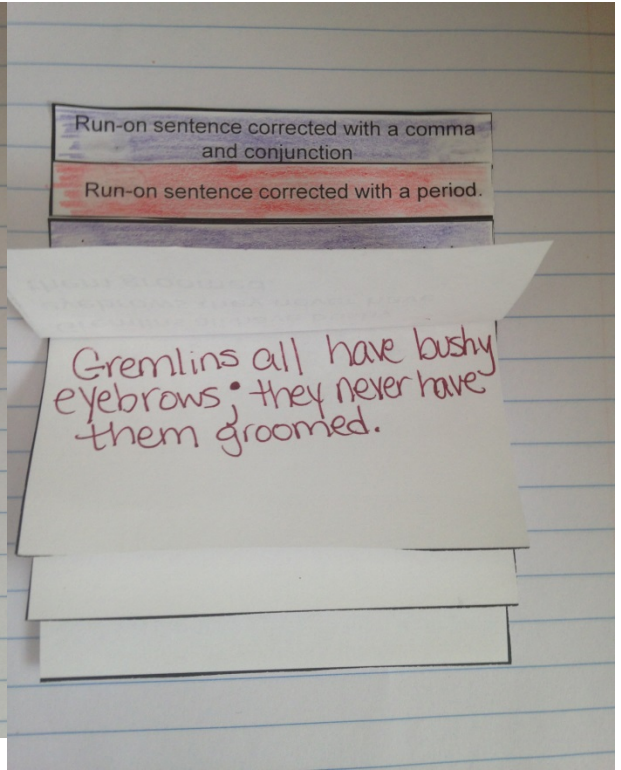 Run-on sentence corrected with a comma
and conjunction
Run-on sentence corrected with a period.
Gremlins all have bushy
eyebrows; they never have
them groomed.